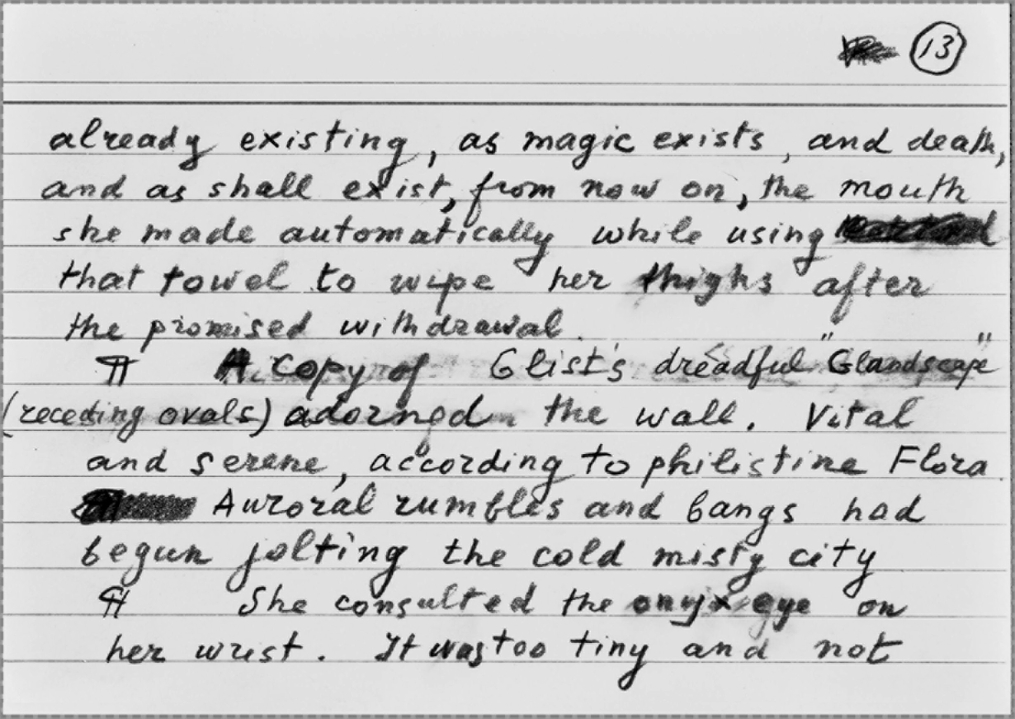 13
already existing, as magic exists, and death,
and as shall exist, from now on, the mouth
she made automatically while using
that towel to wipe her thighs after
the promised withdrawal.
¶ A copy of Glist's dreadful "Glandscape"
(receding ovals) adorned the wall. Vital
and serene, according to philistine Flora.
Auroral rumbles and bangs had
begun jolting the cold misty city
¶ She consulted the onyx eye on
her wrist. It was too tiny and not